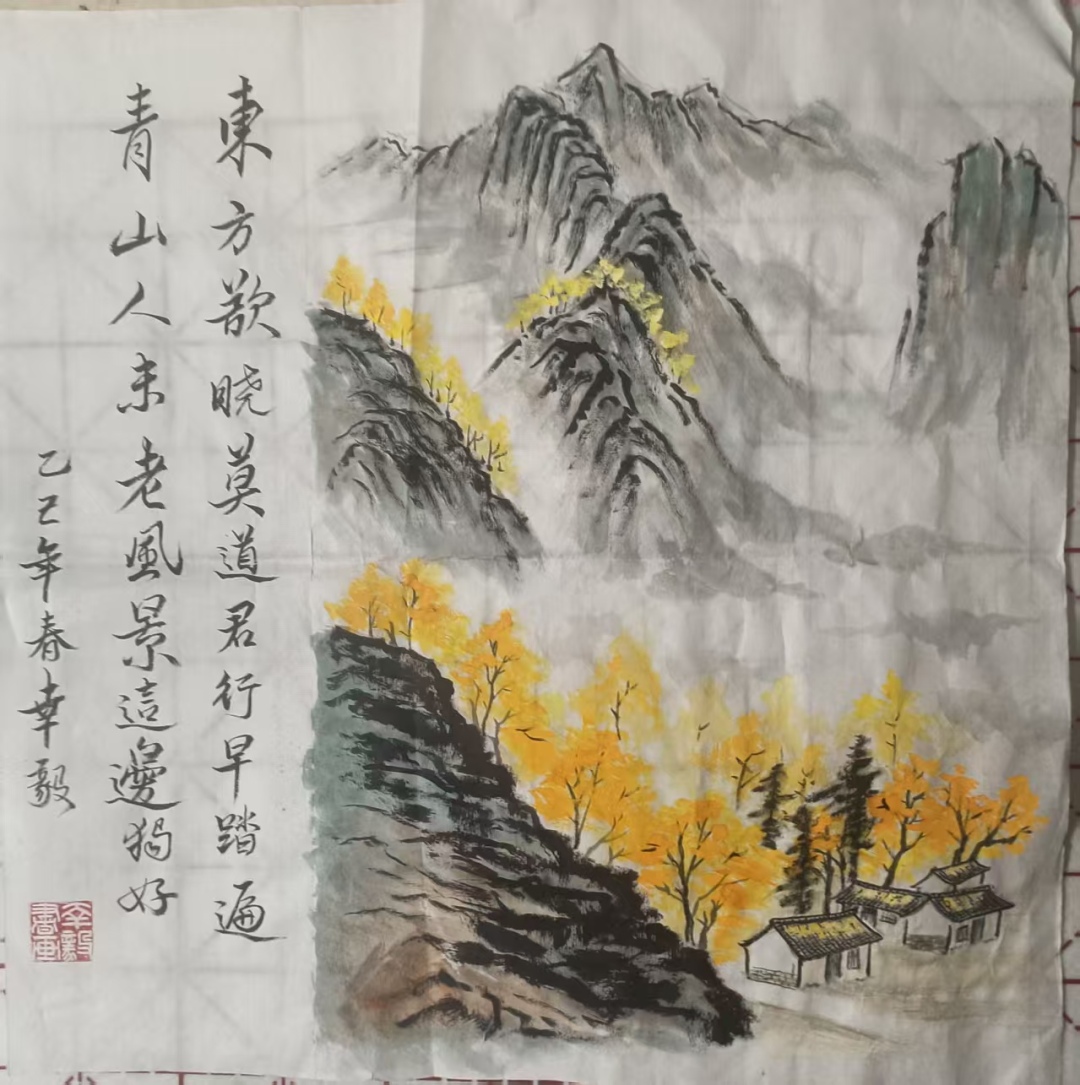 東方欲晓莫道君行早踏遍
青山人未老風景這邊獨好
乙巳年春辛毅
辛毅書画